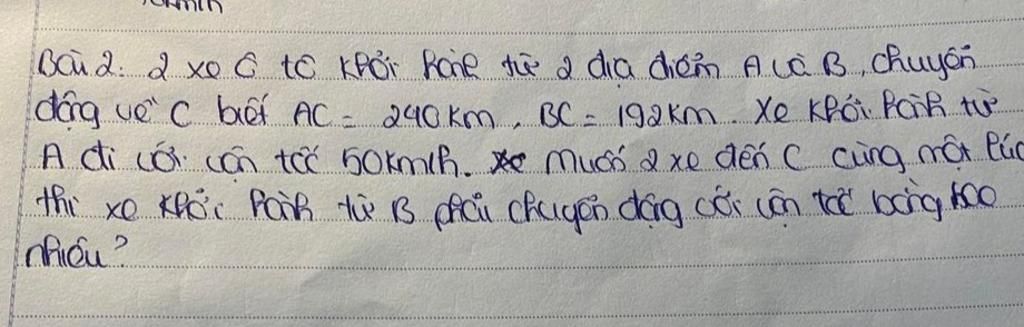 Bài 2: 2 xe ô tô khởi hành từ 2 địa điểm A và B, chuyển
động về C biết AC = 240km, BC = 192km. Xe khởi hành từ
A đi với vận tốc 50km/h. Muốn 2 xe đến C cùng một lúc
thì xe khởi hành từ B phải chuyển động với vận tốc bằng bao
nhiêu?